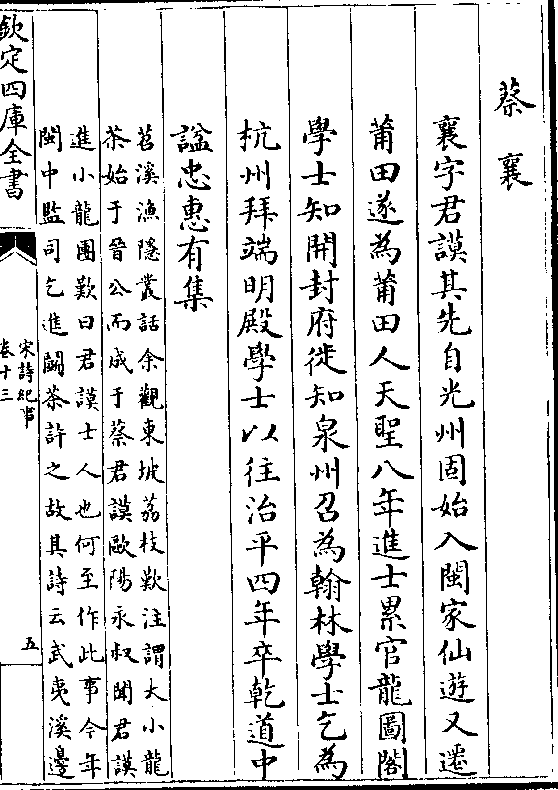 蔡襄
襄字君謨其先自光州固始入閩家仙遊又遷
莆田遂為莆田人天聖八年進士累官龍圖閣
學士知開封府徙知泉州召為翰林學士乞為
杭州拜端明殿學士以往治平四年卒乾道中
諡忠惠有集
苕溪漁隱叢話余觀東坡荔枝歎注謂大小龍
茶始于晉公而成于蔡君謨歐陽永叔聞君謨
進小龍團歎曰君謨士人也何至作此事今年
閩中監司乞進鬬茶許之故其詩云武夷溪邊
欽定四庫全書
宋詩紀事
卷十三
五